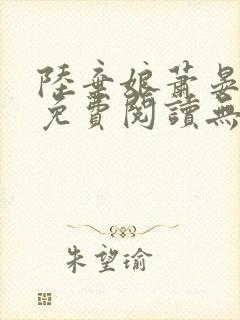 陸棄娘蕭晏
免費閱讀無
朱望瑜